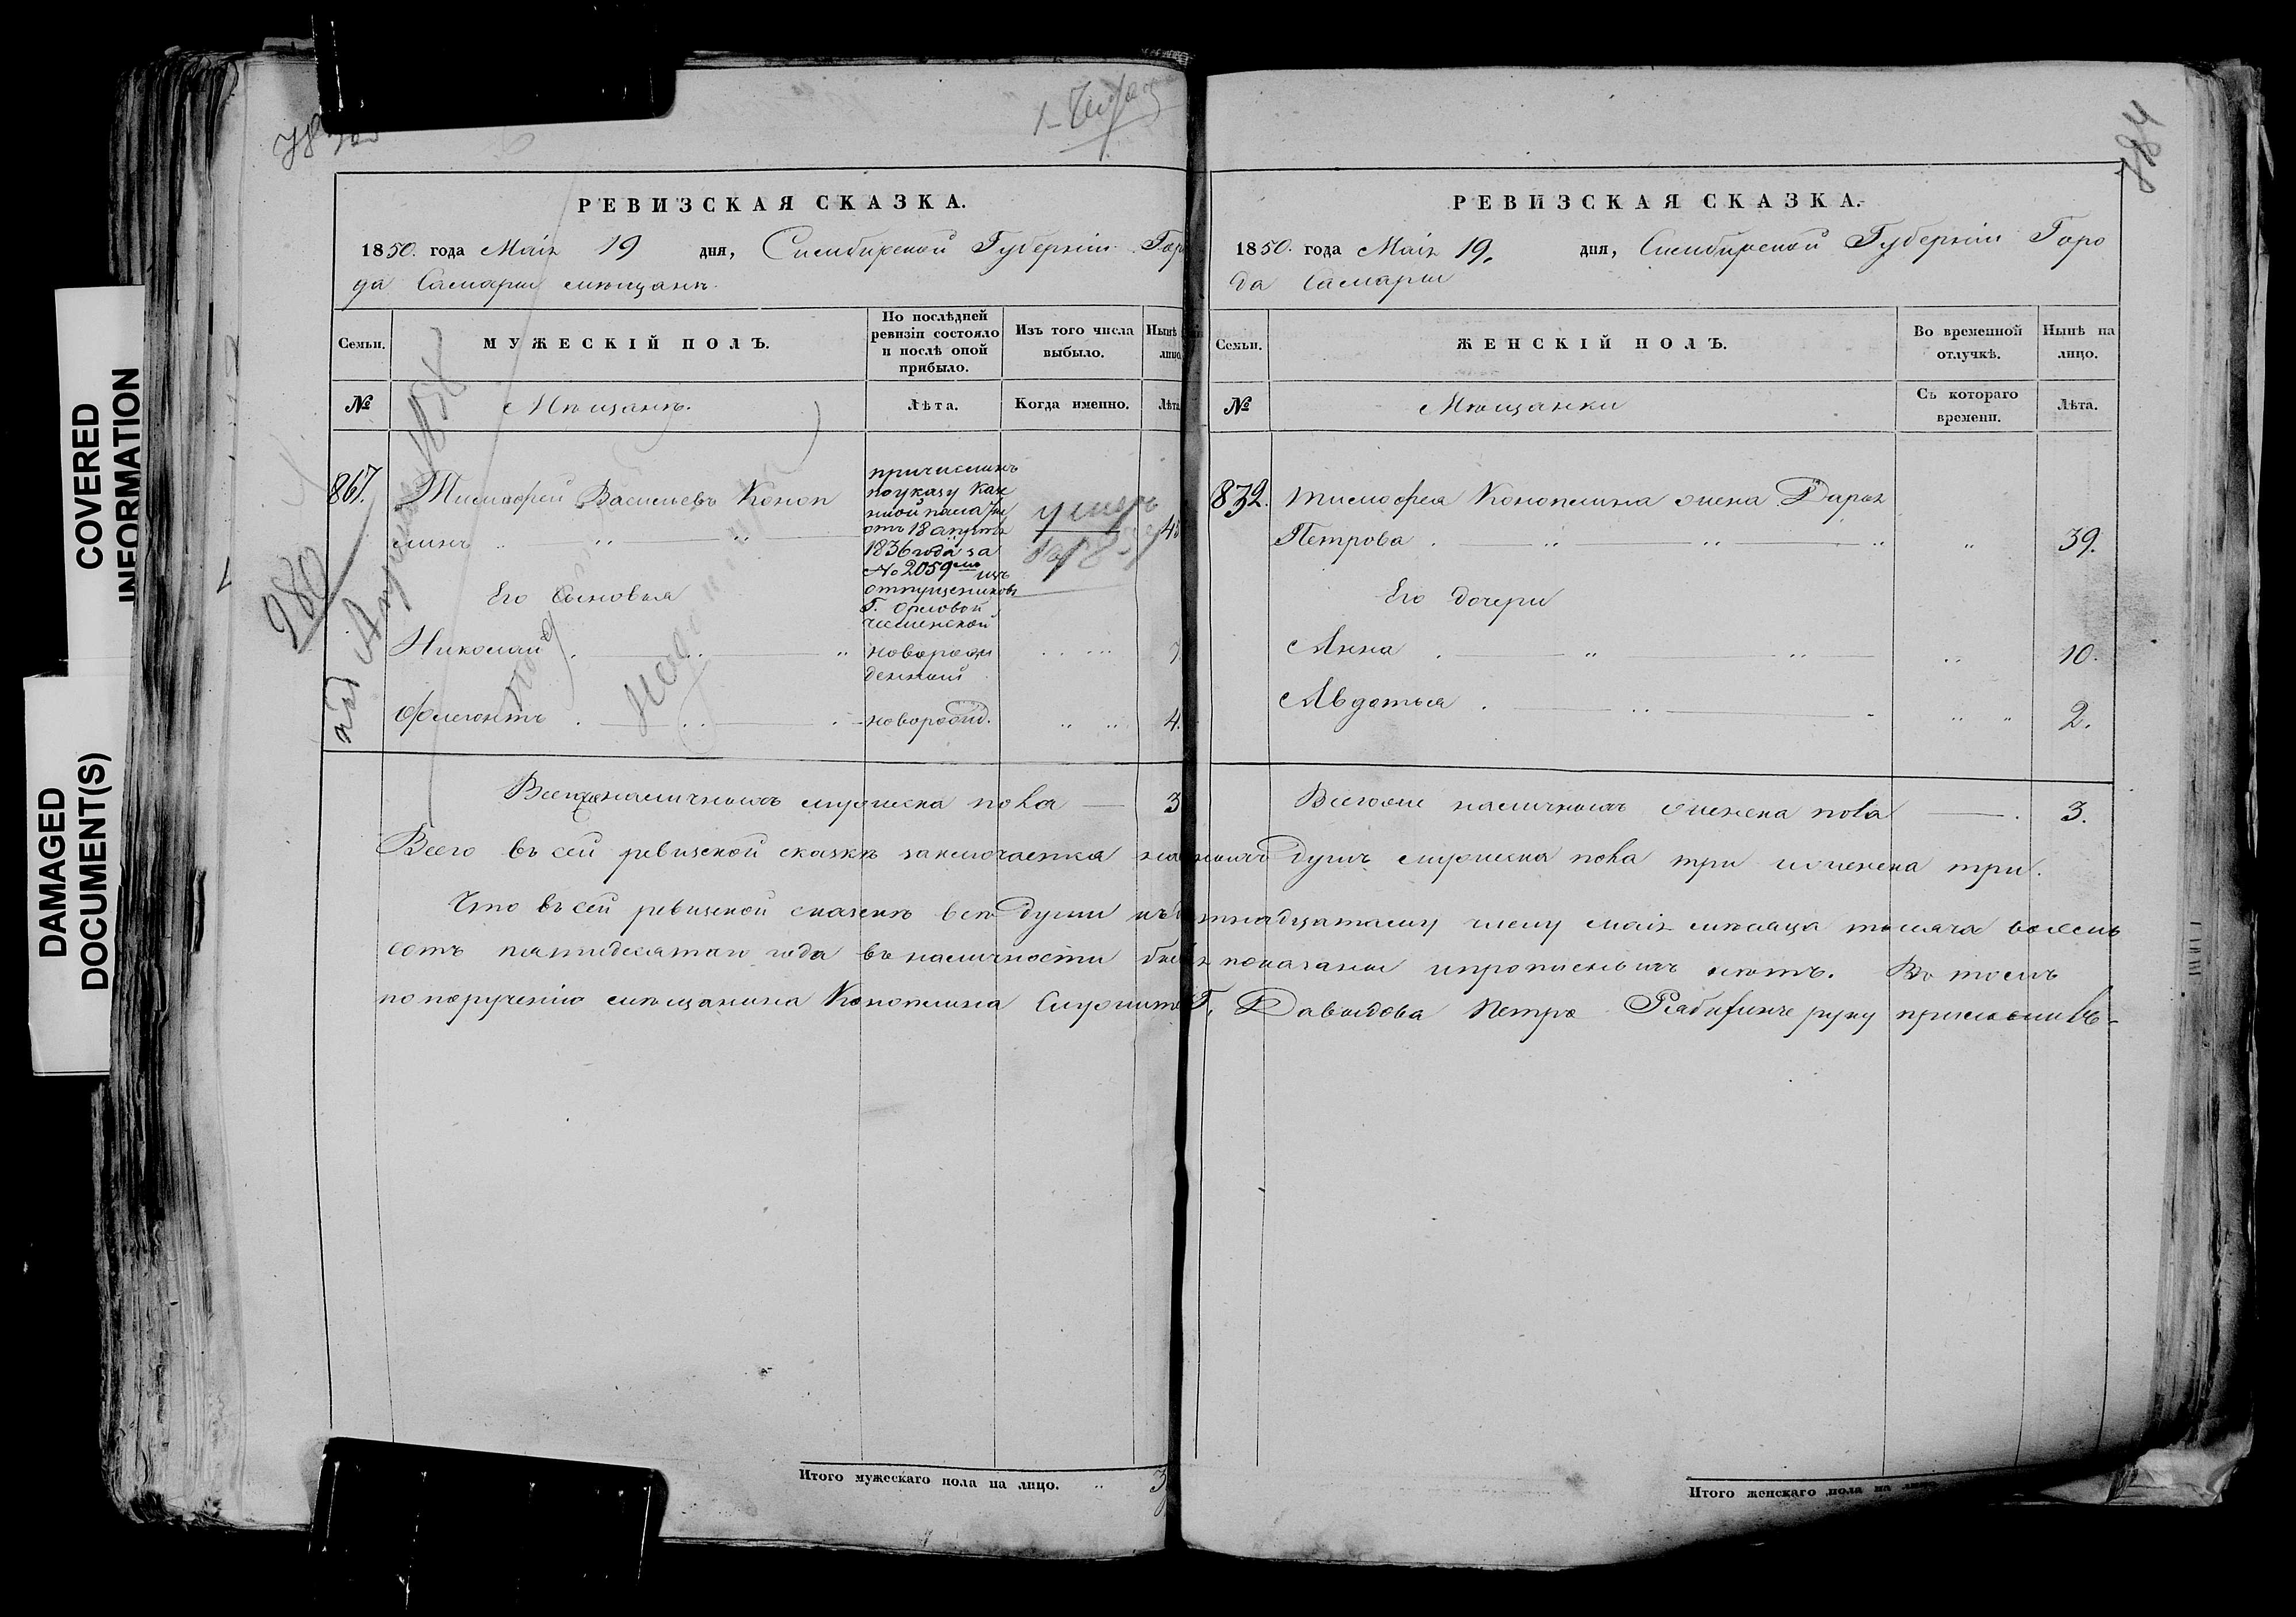 COVERED
INFORMATION
DAMAGED
DOCUMENT(S)
РЕВИЗСКАЯ СКАЗКА.
1850. года Маія 19 дня, Симбирской Губерніи Горо
да Самары мѣщанъ.
Семьи.
МУЖЕСКІЙ ПОЛЪ.
По послѣдней
ревизіи состояло
и послѣ оной
прибыло.
Изъ того числа
выбыло.
Нынѣ на
лицо
№
Мѣщанъ.
Лѣта.
Когда именно.
Лѣта
867.
Тимофей Васильевъ Коноп
линъ
причисленъ
по указу Каз
отъ 18 августа
1836 года за
№ 2059 изъ
отпущенниковъ
Г. Орловой
чесменской
умеръ
280
Его Сыновья
Николай
новорож
денный
7.
Флегонтъ
новорожд.
4.
Всего же наличныхъ мужеска пола
3
РЕВИЗСКАЯ СКАЗКА.
1850. года Маія 19. дня, Симбирской Губерніи Горо
да Самары
Семьи.
ЖЕНСКІЙ ПОЛЪ.
Во временной
отлучкѣ.
Нынѣ на
лицо.
№
Мѣщанки
Съ котораго
времени.
Лѣта.
832.
Тимофея Коноплина жена Дарья
Петрова
39.
Его дочери
Анна
10.
Авдотья
2.
Всего же наличныхъ женска пола
3.
Всего въ сей ревизской сказкѣ заключается душъ мужеска пола три и женска три.
Что въ сей ревизской сказкѣ всѣ души къ тнадцатому числу маія мѣсяца тысяча восемь
сотъ пятидесятаго года въ наличности бывшія показаны и прописныхъ нѣтъ. Въ томъ
по порученію мѣщанина Коноплина Г. Давыдова Петръ руку приложилъ.
Итого мужескаго пола на лицо.
3
Итого женскаго пола на лицо